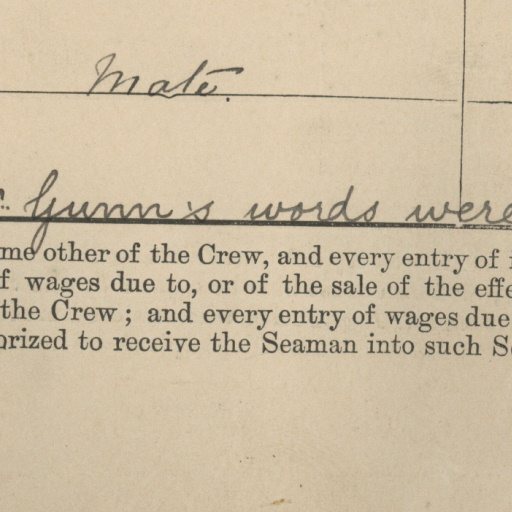 Mate.
Gunn's words were
me other of the Crew, and every entry of
f wages due to, or of the sale of the effe
the Crew; and every entry of wages due
orized to receive the Seaman into such S